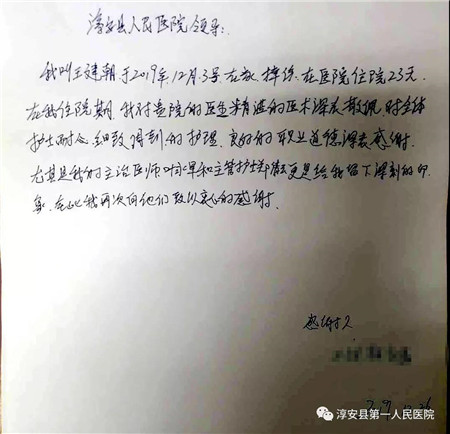 淳安县人民医院领导:
我叫王建朝于2019年12月3号在家摔伤.在医院住院23天.
在我住院期.我对贵院的医生精湛的医术深表敬佩.对全体
护士耐心.细致周到.的护理.良好的的职业道德深表感谢.
尤其是我的主治医师叶军和主管护士更是给我留下深刻的印
象.在此我再次向他们致以衷心的感谢.
感谢人
淳安县第一人民医院